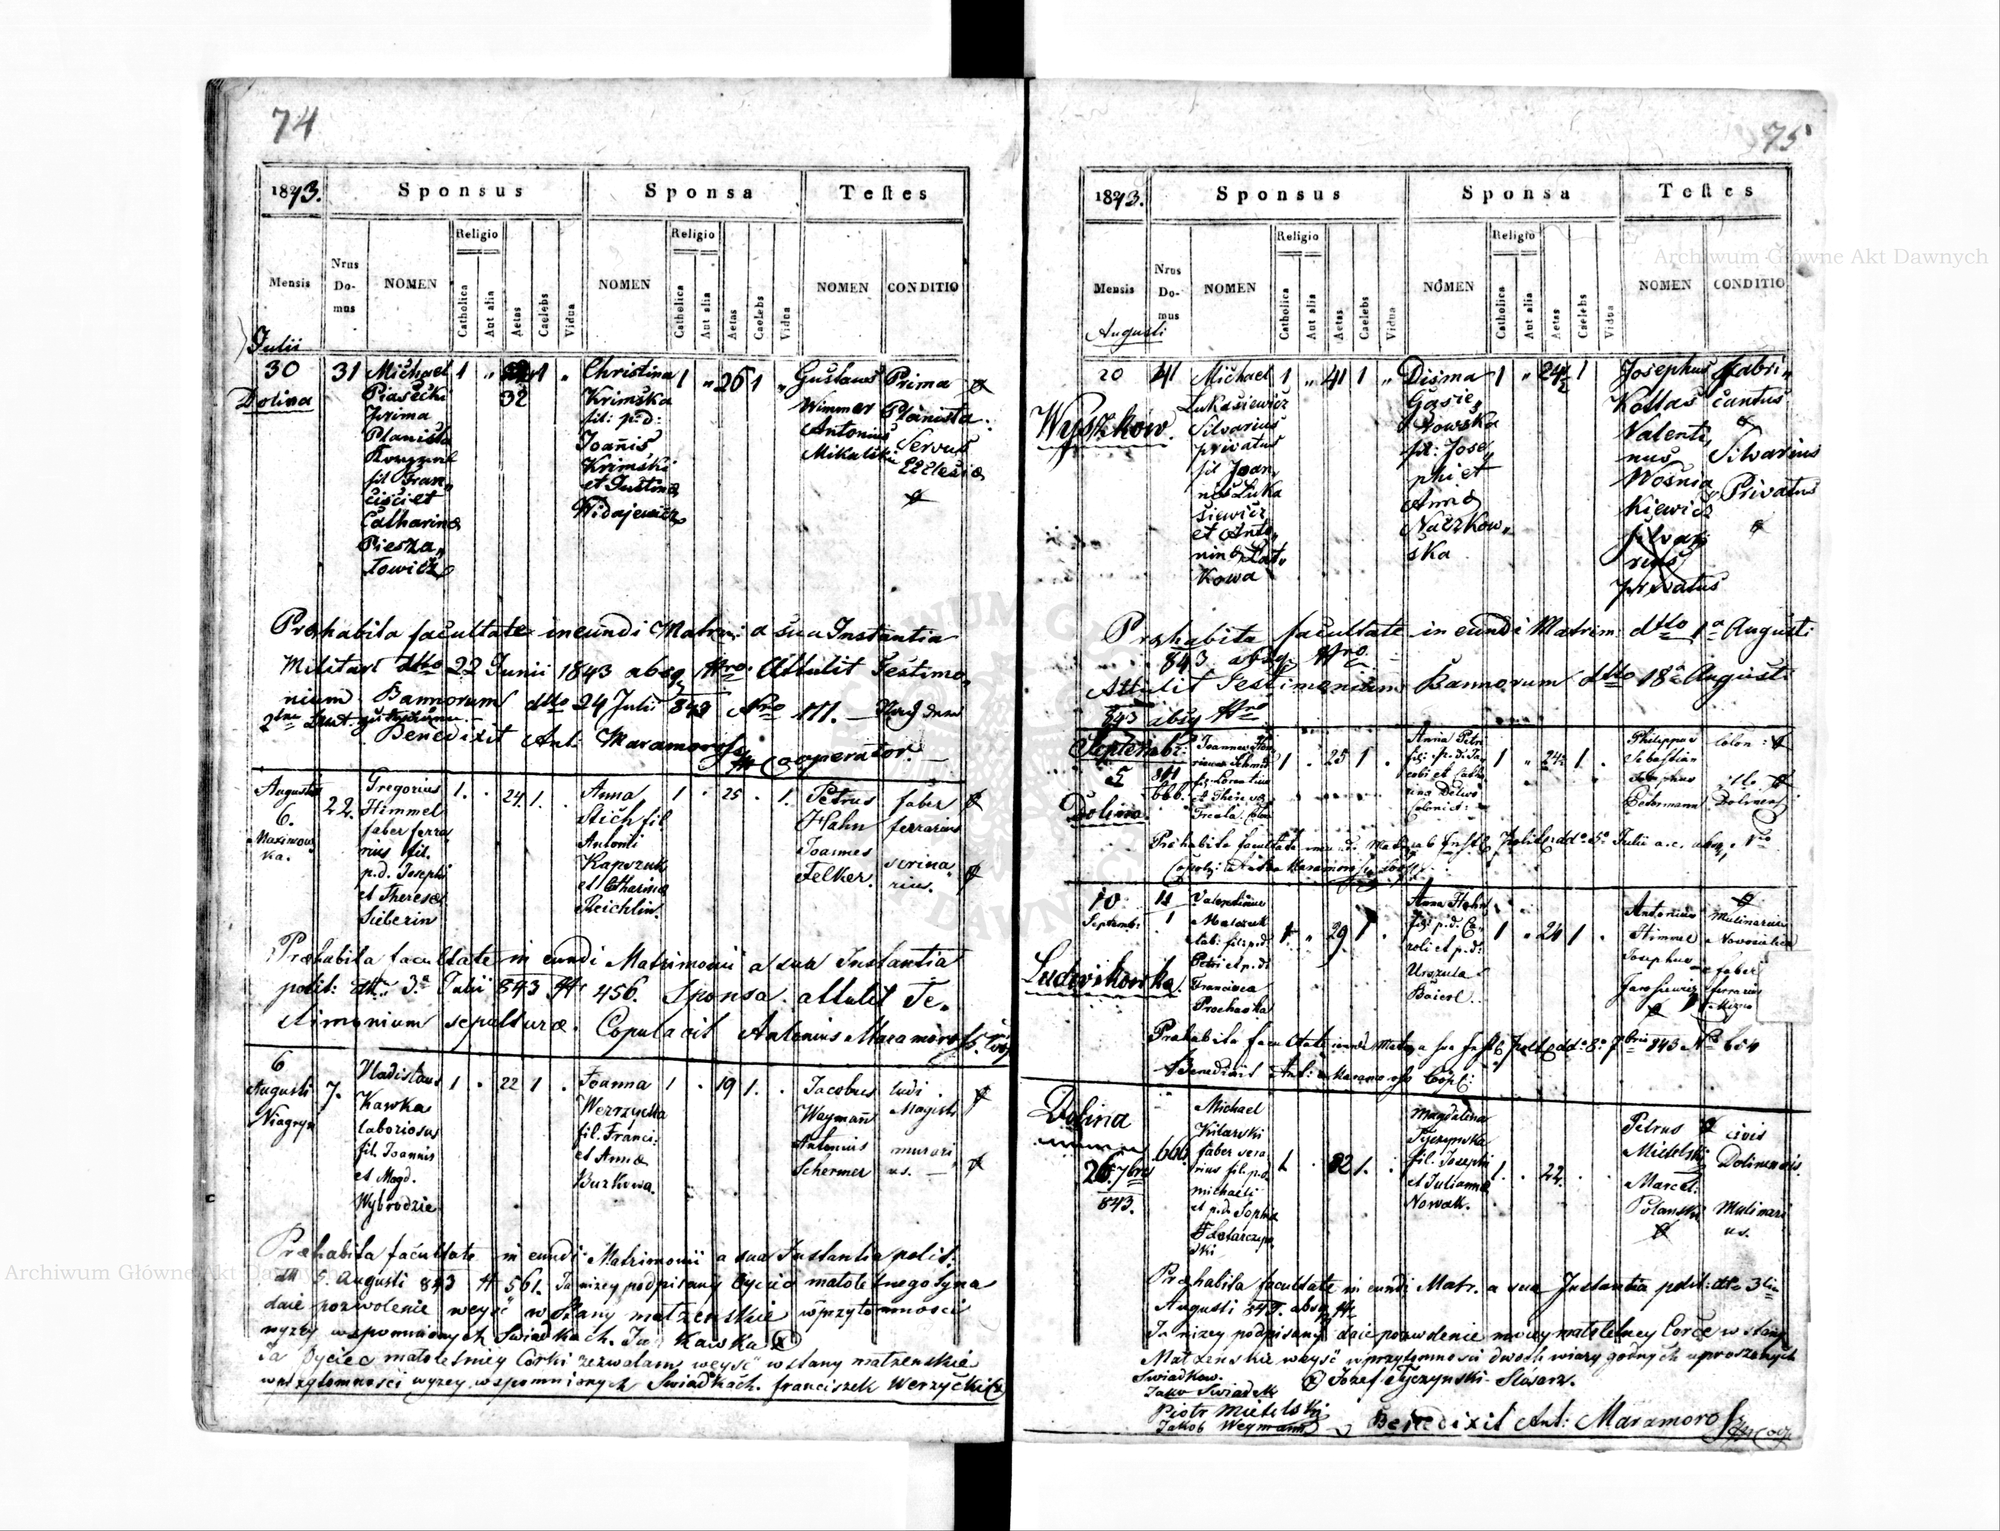 74
1843.
Sponsus
Sponsa
Testes
Mensis
Nrus Domus
NOMEN
Religio
Catholica
Aut alia
Aetas
Caelebs
Vidua
NOMEN
Religio
Catholica
Aut alia
Aetas
Caelebs
Vidua
NOMEN
CONDITIO
Julii
30
Dolina
31
Michael
Piasecki
prima
Planista
fil Fran„
cisci et
Catharina
Piesza„
towicz
1 „
32
1 „
Christina
Krimska
fil: p:d:
Joanis
Krimski
et Justina
Widajewicz
1 „ 26 1 „
Gustaws
Wimmer
Antonius
Mikulski
Prima
Planista
Servus
Ecclesiæ
Præhabita facultate ineundi Matrim: a sua Instantia
Militari dtto 22 Junii 1843 absq Nro. Attulit Testimo„
nium Bannorum dtto 24 Julii 843 Nro 111.
Benedixit Ant: Maramoross Cooperator.
Augusti
6.
22.
Gregorius
Himmel
faber ferra
rius fil.
p.d. Josephi
et Theresæ
Sieberin
1. . 24. 1. .
Anna
Stich fil
Antonii
Kapszuk
et Catharinæ
Reichlin.
1 . 25 . 1.
Petrus
Hahn
Joannes
Felker.
faber
ferrarius
scrina„
rius.
Præhabita facultate in eundi Matrimonii a sua Instantia
polit: dtt. 3a Julii 843 N 456. Sponsa attulit Te„
stimonium sepulturæ. Copulavit Antonius Maramoross
6
Augusti
Niagryn
7.
Vladislaus
Kawka
laboriosus
fil. Joannis
et Magd.
Wybrodzie
1 . 22 1 .
Joanna
Werzycka
fil. Franci:
et Annæ
Burkowa.
1 . 19 1. .
Jacobus
Waymañ
Antonius
Schermer
ludi
Magistr
murari
us.
Præhabita facultate in eundi Matrimonii a sua Instantia polit.
dtt 5. Augusti 843 N 561. Ja nizey podpisany Oyciec małoletnego Syna
daie pozwolenie weyść w Stany małzenskie w przytomnosci
wyzey wspomnionych Swiadkach. Jan Kawka
Ja Oyciec małoletniey Corki zezwalam weyść w stany małzenskie
w przytomności wyzey wspomnionych Swiadkach. franciszek Werzycki
75
1843.
Sponsus
Sponsa
Testes
Mensis
Nrus Domus
NOMEN
Religio
Catholica
Aut alia
Aetas
Caelebs
Vidua
NOMEN
Religio
Catholica
Aut alia
Aetas
Caelebs
Vidua
NOMEN
CONDITIO
Augusti
20
Wyszkow.
41
Michael
Lukasiewicz
Silvarius
privatus
fil Joan„
nis Luka
siewicz
et Anto„
nina
kowa
1 „ 41 1 „
Disma
Gasie„
rowska
fil: Jose„
phi et
Anna
Naczkow„
ska
1 „ 24 1
Josephus
Kottas
Valenti„
nus
Wosnia
kiewicz
privatus
fabri„
cantus
Silvarius
Privatus
Præhabita facultate in eundi Matrim: dtto 1a Augusti
843 absq. Nro.
Attulit Testimonium Bannorum dtto 18a Augusti
843 absq Nro
Septembr:
5
Dolina.
666.
Joannes
Schmid
1 . 25 1 .
Anna Petri
fil: p.d. Ja
cobi et Cath
1 „ 24 1 .
Philippus
Sebastian
Josephus
Petermann
Colon:
Præhabita facultate ineundi Matr: ab Instta Polit: dd: 5a Julii a.c. absq. Nro
10
Septemb:
Ludwikowka.
Valentinus
fil: p.d.
Petri et p.d:
Francisca
Prochaska
1 „ 29 1 .
Anna Hahn
fil: p.d. Ca„
roli et p.d:
Urszula
Baierl
1 „ 24 1 .
Antonius
Himmel
Josephus
Molinarius
faber
ferrarius
Præhabita facultate ineundi Matr: a sua Insta Polit dd: 8a 7bris 843 No 654
Benedixit Ant: Maramoross Coopt:
Dolina
26. 7bris
843.
666
Michael
Kilarski
faber sera
rius fil. p.d.
michaeli
et p.d. Sophia
1 . 32 1. .
Magdalena
Tyczynska
fil. Josephi
et Julianna
Nowak.
1. . 22. . .
Petrus
Mietelski
Marcel:
Polanski
civis
Dolinensis.
Mulinari
us.
Præhabita facultate in eundi Matr. a sua Instantia polit: dtto 3tia
Augusti 843. absq Nr.
Ja nizey podpisany daie pozwolenie moiey małoletney Corce w stany
Małzenskie weyść w przytomności dwoch wiary godnych uproszonych
Swiadkow. Jozef Tyczynski Slosarz.
Jako Swiadek
Piotr Mietelski
Jakob Weymann
Benedixit Ant: Maramoross
Archiwum Główne Akt Dawnych
Archiwum Główne Akt Dawnych